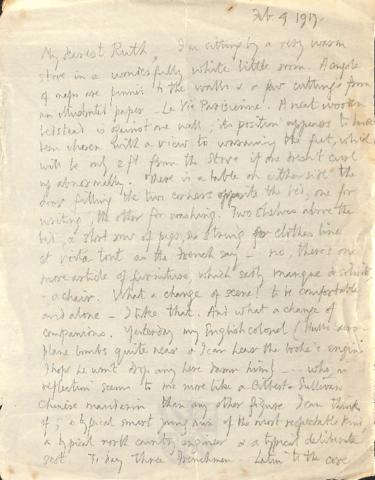 Feb. 9 1917.
My dearest Ruth, I'm sitting by a very warm
stove in a wonderfully white little room. A couple
of maps are pinned to the walls & a few cuttings from
an illustrated paper - La Vie Parisienne. A neat wooden
bedstead is against one wall; its position appears to have
been chosen with a view to warming the feet, which
will be only 2 ft from the stove if one doesn't curl
up abnormally. There is a table on either side the
door filling the two corners opposite the bed, one for
writing, the other for washing. Two shelves above the
bed, a short row of pegs, a string for clothes line
et voila tout as the French say - no, there's one
more article of furniture, which sadly manque de solidité
- a chair. What a change of scene! to be comfortable
and alone - I take that. And what a change of
companions. Yesterday my English colonel (Hullo aero-
plane bombs quite near & I can hear the boche's engine
I hope he won't drop any here damn him) --- who on
reflection seems to me more like a Gilbert & Sullivan
Chinese mandarin than any other figure I can think
of; & a typical smart young man of the most respectable kind
a typical north country engineer & a typical deliberate
Scot. Today three Frenchmen - Latin to the core